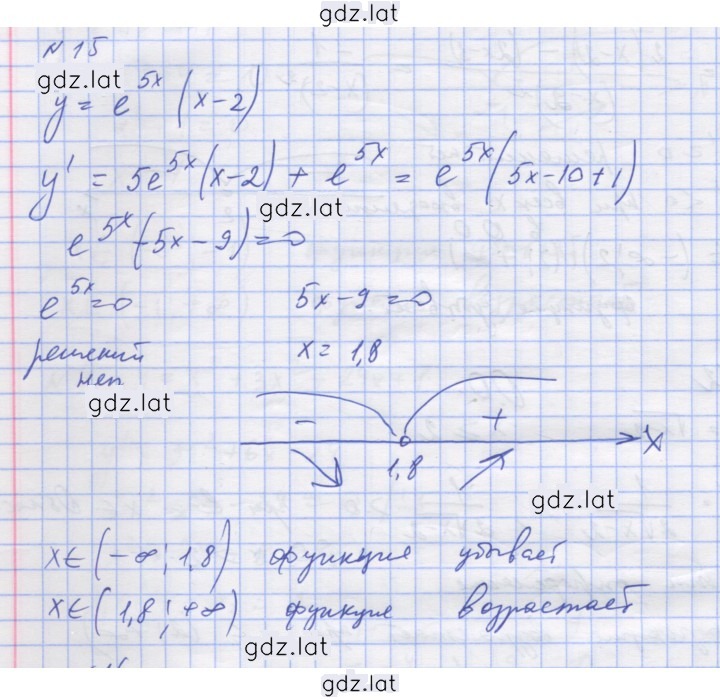 gdz.lat
N 15
gdz.lat
y = e^{5x} (x-2)
y' = 5e^{5x}(x-2) + e^{5x} = e^{5x}(5x-10+1)
gdz.lat
e^{5x}(5x-9)=0
e^{5x}=0 5x-9=0
решений x = 1,8
нет
gdz.lat
- +
1,8 x
gdz.lat
x∈(-∞; 1,8) функция убывает
x∈(1,8; +∞) функция возрастает
gdz.lat
gdz.lat